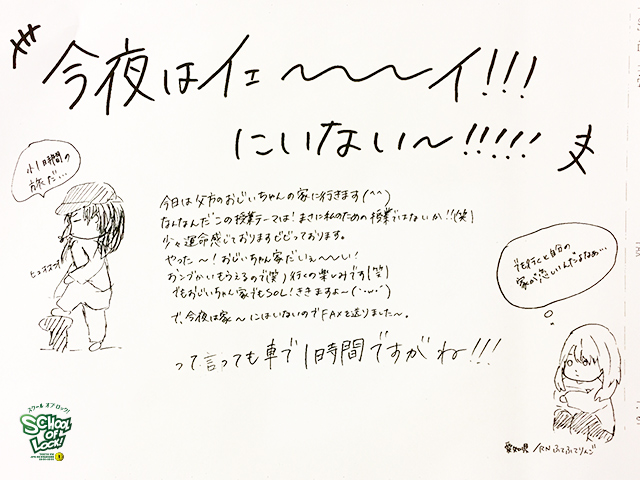 今夜はイェ〜〜〜イ!!!
にいない〜!!!!!
小1時間の
旅だ…
今日は父方のおじいちゃんの家に行きます(^^)
なんなんだこの授業テーマは!まさに私のための授業ではないか!!(笑)
少々運命感じておりますビビっております。
やった〜!おじいちゃん家だいぇ〜〜い!
おこづかいもらえるので(笑)行くの楽しみです(笑)
でもおじいちゃん家でもSOL!ききますよ〜(・ω・)
で、今夜は家〜にはいないのでFAXを送りました〜。
って言っても車で1時間ですがね!!!
でも行くと自分の
家が恋しいんだよなぁ…
スクール オブ ロック!
SCHOOL OF LOCK!
愛知県/RNふてふてりんご